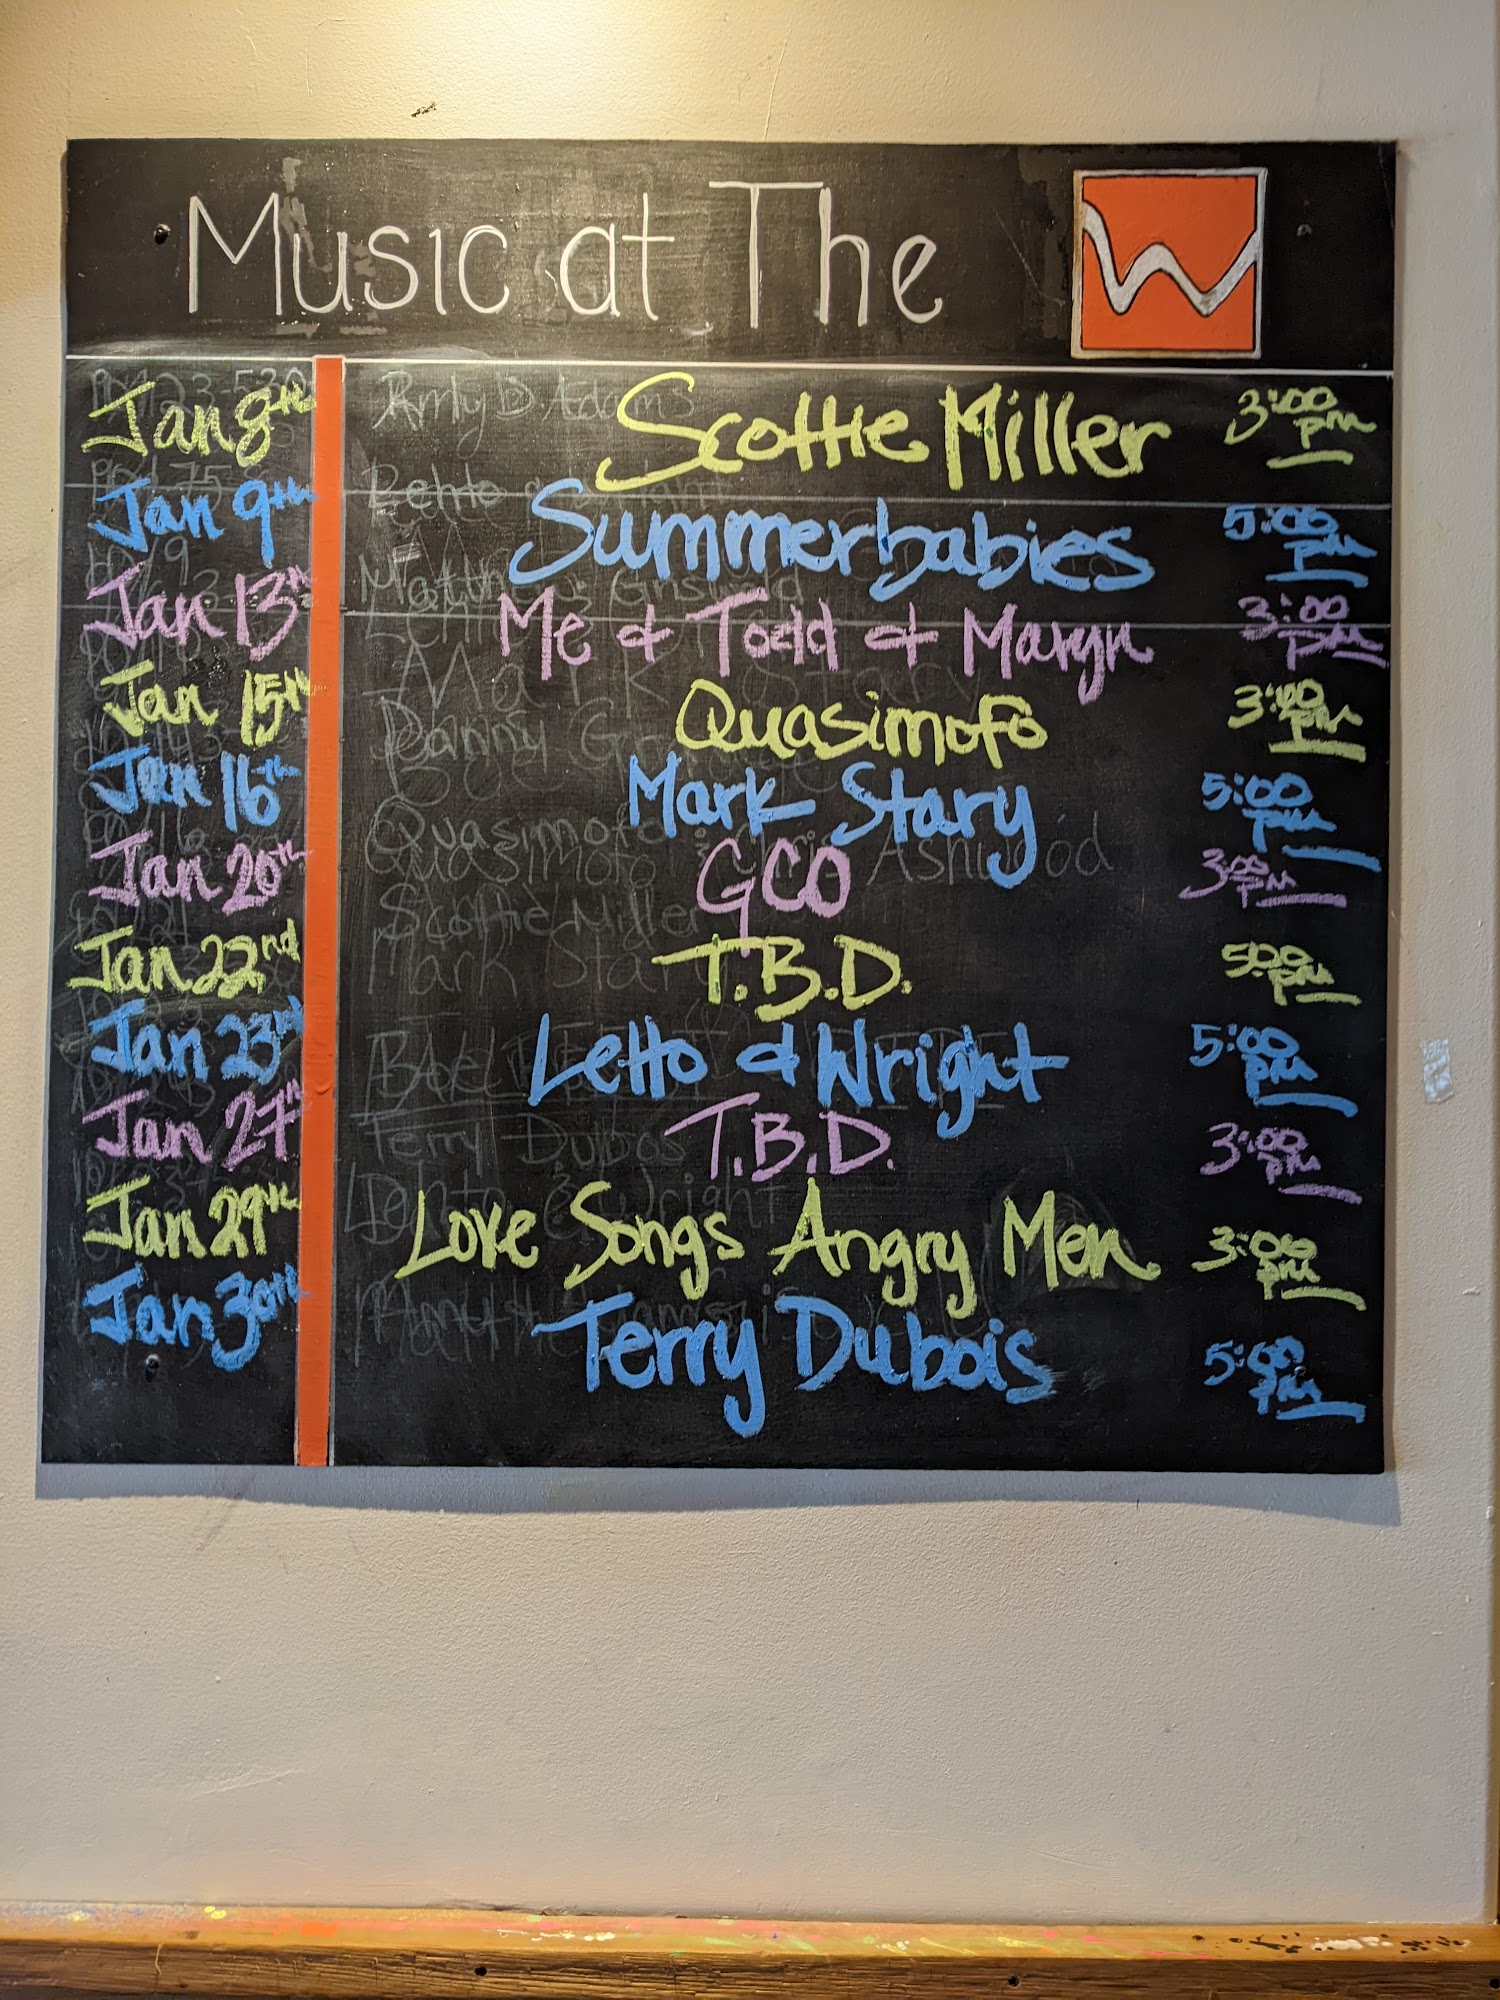 Music at The W
Jan 8th Scottie Miller 3:00 pm
Jan 9th Summerbabies 5:00 pm
Jan 13th Me & Todd & Maryn 3:00 pm
Jan 15th Quasimofo 3:00 pm
Jan 16th Mark Stary 5:00 pm
Jan 20th GCO 3:00 pm
Jan 22nd T.B.D. 5:00 pm
Jan 23rd Letto & Wright 5:00 pm
Jan 27th T.B.D. 3:00 pm
Jan 29th Love Songs Angry Men 3:00 pm
Jan 30th Terry Dubois 5:00 pm